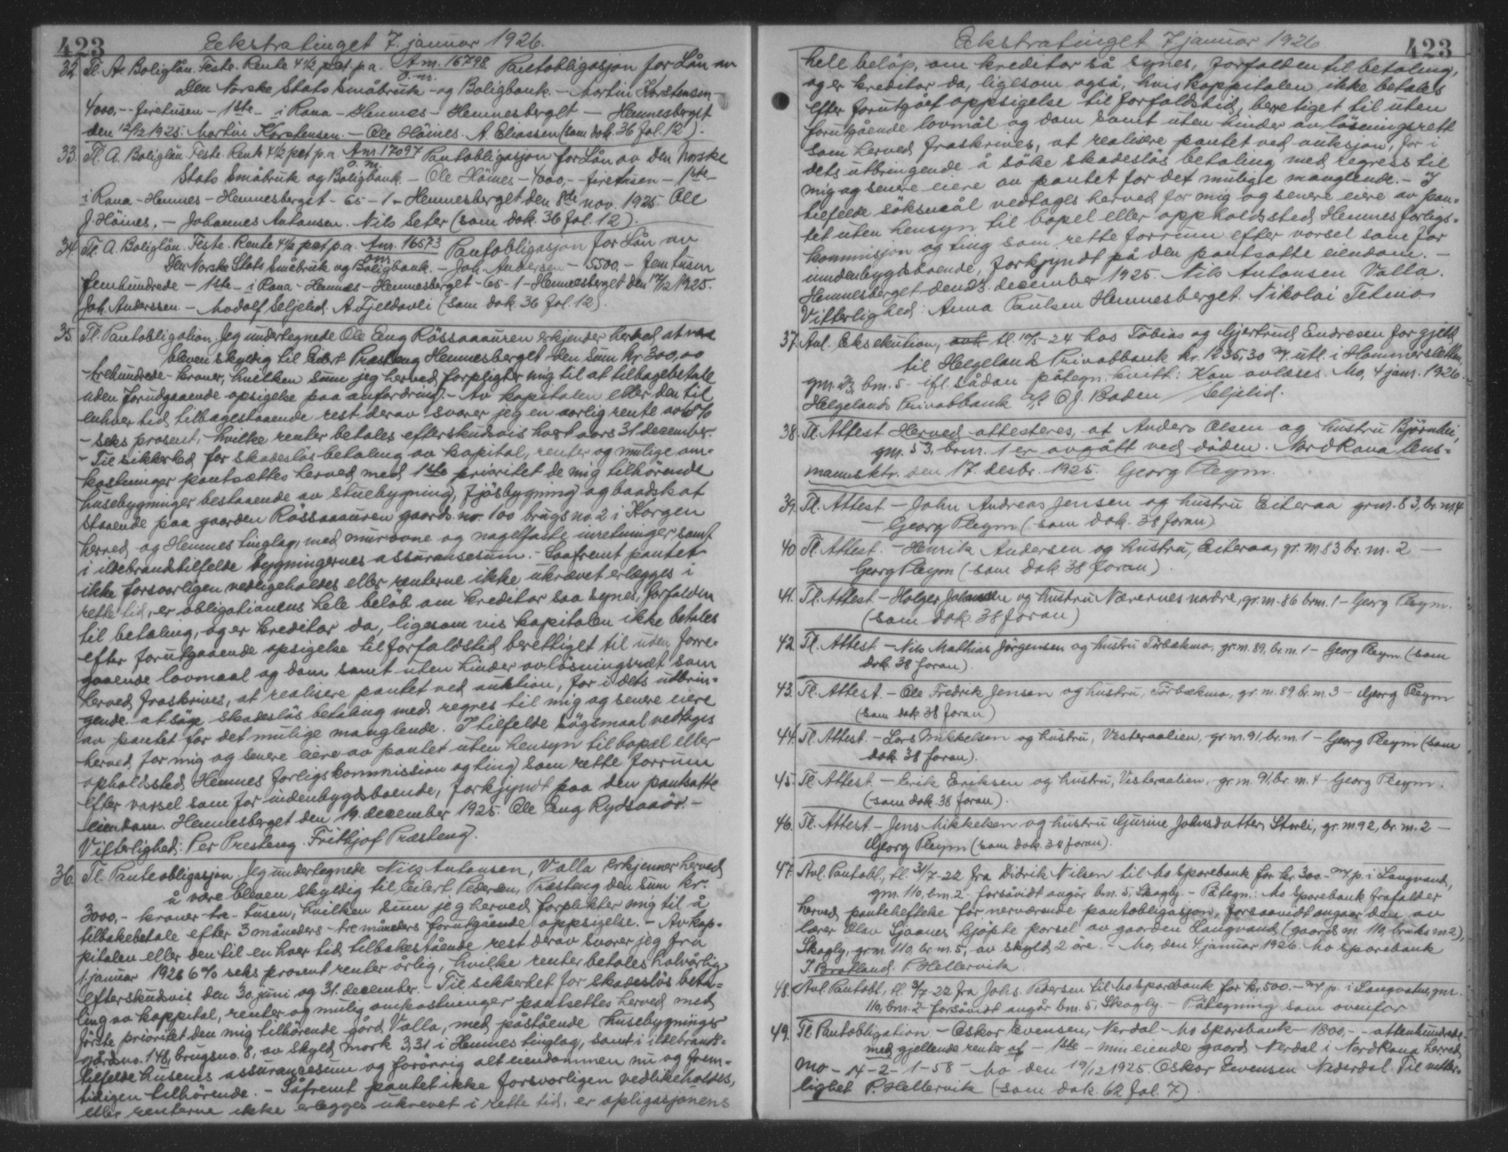 423 Eekstratinget 7. januar 1926.
32. Tl. A. Boliglån. Feste. Rente 4½ pct p.a. Anr. 16798 Pantobligasjon for Lån av
o.m. Den Norske Stats Småbruk- og Boligbank. - Martin Karstensen -
4000,- firetusen - 1ste - i Rana - Hemnes - Hemnesberget - Hemnesberget
den 12/12 1925. Martin Karstensen. - Ole Hämes. A. Eliassen (som dok 36 fol 12).
33. Tl. A. Boliglån. Feste. Rente 4½ pct p.a. Anr. 17097 Pantobligasjon for Lån av Den Norske
o.m. Stats Småbruk og Boligbank. - Ole Hämes - 4000,- firetusen - 1ste -
i Rana - Hemnes - Hemnesberget - 65 - 1 - Hemnesberget den 8de nov. 1925 Ole
J. Hämes. - Johannes Antonsen. Nils Seter (som dok 36 fol 12).
34. Tl. A. Boliglån. Feste. Rente 4½ pct p.a. Anr. 16573 Pantobligasjon for Lån av
o.m. Den Norske Stats Småbruk og Boligbank. - Joh. Andersen - 5500.- femtusen
femhundrede - 1ste - i Rana - Hemnes - Hemnesberget - 65 - 1 - Hemnesberget den 14/12 1925.
Joh. Anderssen - Modolf Seljelid. A. Fjeldavli (som dok 36 fol. 12).
35. Tl. Pantobligation. Jeg undertegnede Ole Eng Rössaaauren erkjender herved at være
bleven skyldig til Præsteng Hemnesberget den sum kr. 300,00
- trehundrede - kroner, hvilken sum jeg herved forpligter mig til at tilbagebetale
uden forudgaaende opsigelse paa anfordring. - Av kapitalen eller den til
enhver tid tilbagestaaende rest derav svarer jeg en aarlig rente av 6%
- seks prosent, - hvilke renter betales efterskudsvis hvert aars 31 december.
- Til sikkerhed for skadesløs betaling av kapital, renter og mulige om-
kostninger pantsættes herved med 1ste prioritet de mig tilhörende
husebygninger bestaaende av stuebygning, fjösbygning og baadskot
staaende paa gaarden Rössaaauren gaards no. 100 brugs no. 2 i Korgen
herred og Hemnes tinglag, med murovne og nagelfaste inretninger samt
i ildebrandstilfelde bygningernes assuransesum. - Saafremt pantet
ikke forsvarligen vedligeholdes eller renterne ikke ukrævet erlægges i
rette tid, er obligationens hele belöb om kreditor saa synes, forfalden
til betaling, og er kreditor da, ligesom vis kapitalen ikke betales
efter forutgaaende opsigelse til forfaldstid berettiget til uten forre-
gaaende lovmaal og dom samt uten hinder av lösningsret som
herved fraskrives, at realisere pantet ved auktion, for i dets utbrin-
gende at söge skadeslös betaling med regres til mig og senere eiere
av pantet for det mulige manglende. I tilfelde sögsmaal vedtages
herved for mig og senere eiere av pantet uten hensyn til bopæl eller
opholdssted Hemnes forligskommission og ting som rette forrum
efter varsel som for indenbygdsboende, forkjyndt paa den pantsatte
eiendom. Hemnesberget den 19. december 1925. Ole Eng Rydsaaör. -
Vitterlighed: Per Presteng. Frithjof Præsteng.
36. Tl. Panteobligasjon. Jeg undertegnede Nils Antonsen, Valla erkjenner herved
å være bleven skyldig til Eilert Pedersen, Præsteng den sum kr.
3000,- kroner tre-tusen, hvilken sum jeg herved forplikter mig til å
tilbakebetale efter 3 måneders - tre måneders forutgående oppsigelse. - Av kap-
pitalen eller den til en hver tid tilbakestående rest derav svarer jeg fra
1. januar 1926 6% seks prosent renter årlig, hvilke renter betales halvårlig
efterskudsvis den 30. juni og 31. december. - Til sikkerhet for skadesløs beta-
ling av kappital, renter og mulig omkostninger pantsettes herved med
förste prioritet den mig tilhörende gård Valla, med påstående husebygninger
gårdsno. 148, brugsno. 8, av skyld mark 3,31 i Hemnes tinglag, samt i ildebrands-
tilfelde husenes assurancesum og forövrig alt eiendommen nu og frem-
tidigen tilhörende. - Såfremt pantet ikke forsvarligen vedlikeholdes,
eller renterne ikke erlegges ukrevet i rette tid, er opligasjonens
Eekstratinget 7 januar 1926 423
hele belöp, om kreditor så synes, forfalden til betaling,
og er kreditor da, ligesom også, hvis kappitalen ikke betales
efter forutgået oppsigelse til forfaldstid, beretiget til uten
forutgående lovmål og dom samt uten hinder av lösningsrett
som herved fraskrives, at realisere pantet ved auksjon, for i
dets utbringende å söke skadeslös betaling med regress til
mig og senere eiere av pantet for det mulige manglende. - I
tilfelde söksmål vedtages herved for mig og senere eiere av pan-
tet uten hensyn til bopel eller oppholdsted Hemnes forlegs-
kommisjon og ting som rette forrum efter varsel som for
innenbygdsboende, forkjyndt på den pantsatte eiendom. -
Hemnesberget den december 1925. Nils Antonsen Valla.
Vitterlighed: Anna Paulsen Hemnesberget. Nikolai Tetmo
37. Avl. Eksekution, tl. -24 hos Tobias og Gjertrud Endresen for gjeld
til Helgelands Privatbank kr. 1236,30 utl. i Hammersletten,
gm. br. 5 - ifl. sådan påtegn. kvitt: Kan avlæses. Mo, 4 jan. 1926.
Helgelands Privatbank O. J. Baden / Seljelid.
38. Tl. Attest Herved attesteres, at Anders Olsen og hustru Bjørnli,
gm. 53, brm. 1 er avgått ved döden. Nord Rana lens-
mannsktr. den 17. desbr. 1925. Georg Pleym.
39. Tl. Attest - John Andreas Jensen og hustru Eiteraa grm. 83, br. nr. 4
- Georg Pleym (som dok. 38 foran)
40. Tl. Attest. - Henrik Andersen og hustru, Eiteraa, gr. m 83 br. m. 2 -
Georg Pleym (som dok 38 foran).
41. Tl. Attest - Holger Johansen og hustru Nævernes nordre, gr. m. 86 brm. 1 - Georg Pleym.
(som dok 38 foran)
42. Tl. Attest - Nils Mathias Jörgensen og hustru Törbakmo, gr. m. 89, br. m. 1 - Georg Pleym (som
dok 38 foran).
43. Tl. Attest - Ole Fredrik Jensen og hustru, Törbækmo, gr. m. 89 br. m. 3 - Georg Pleym
(som dok 38 foran)
44. Tl. Attest. - Lars Mikkelsen og hustru, Vesteraalien, gr. m. 91, br. m. 1 - Georg Pleym (som
dok 38 foran).
45. Tl. Attest - Erik Eriksen og hustru, Vesteraalien, gr. m. 91, br. m. 4 - Georg Pleym.
(som dok 38 foran).
46. Tl. Attest - Jens Mikkelsen og hustru Gurine Johnsdatter, Storli, gr. m. 92, br. m. 2 -
Georg Pleym (som dok. 38 foran).
47. Avl. Pantobl. tl. 3/7-22 fra Didrik Nilsen til Mo Sparebank for kr. 300.- m. p. i Langvand,
gm. 110, bm. 2 - forsåvidt angår bm. 5, Skogly. - Påtegn: Mo Sparebank frafalder
herved panteheftelse for nerværende pantobligasjon, forsaavidt angaar den av
lærer Olav Sjaanes kjöpte parsel av gaarden Langvand (gaards m. 110, bruks m 2),
Skogly, grm. 110 br. m. 5, av skyld 2 öre. - Mo, den 4 januar 1926. Mo Sparebank
J. Bratland. P. Hellervik.
48. Avl. Pantobl. tl. 3/7-22 fra Johs. Pedersen til Mo Sparebank for kr. 500.- m. p. i Langvatn, gm.
110, bm. 2 - forsåvidt angår bm. 5, Skogly - Påtegning som ovenfor
49. Tl. Pantobligation - Oskar Evensen, Nerdal - Mo Sparebank - 1800,- - attenhundrede
med gjellende renter af - 1ste - min eiende gaard Nerdal i Nord Rana herred
Mo - 14 - 2 - 1 - 58 - Mo den 19/12 1925 Oskar Evensen Næderdal. Til vitter-
lighet P. Hellervik (som dok. 62 fol. 7).
423